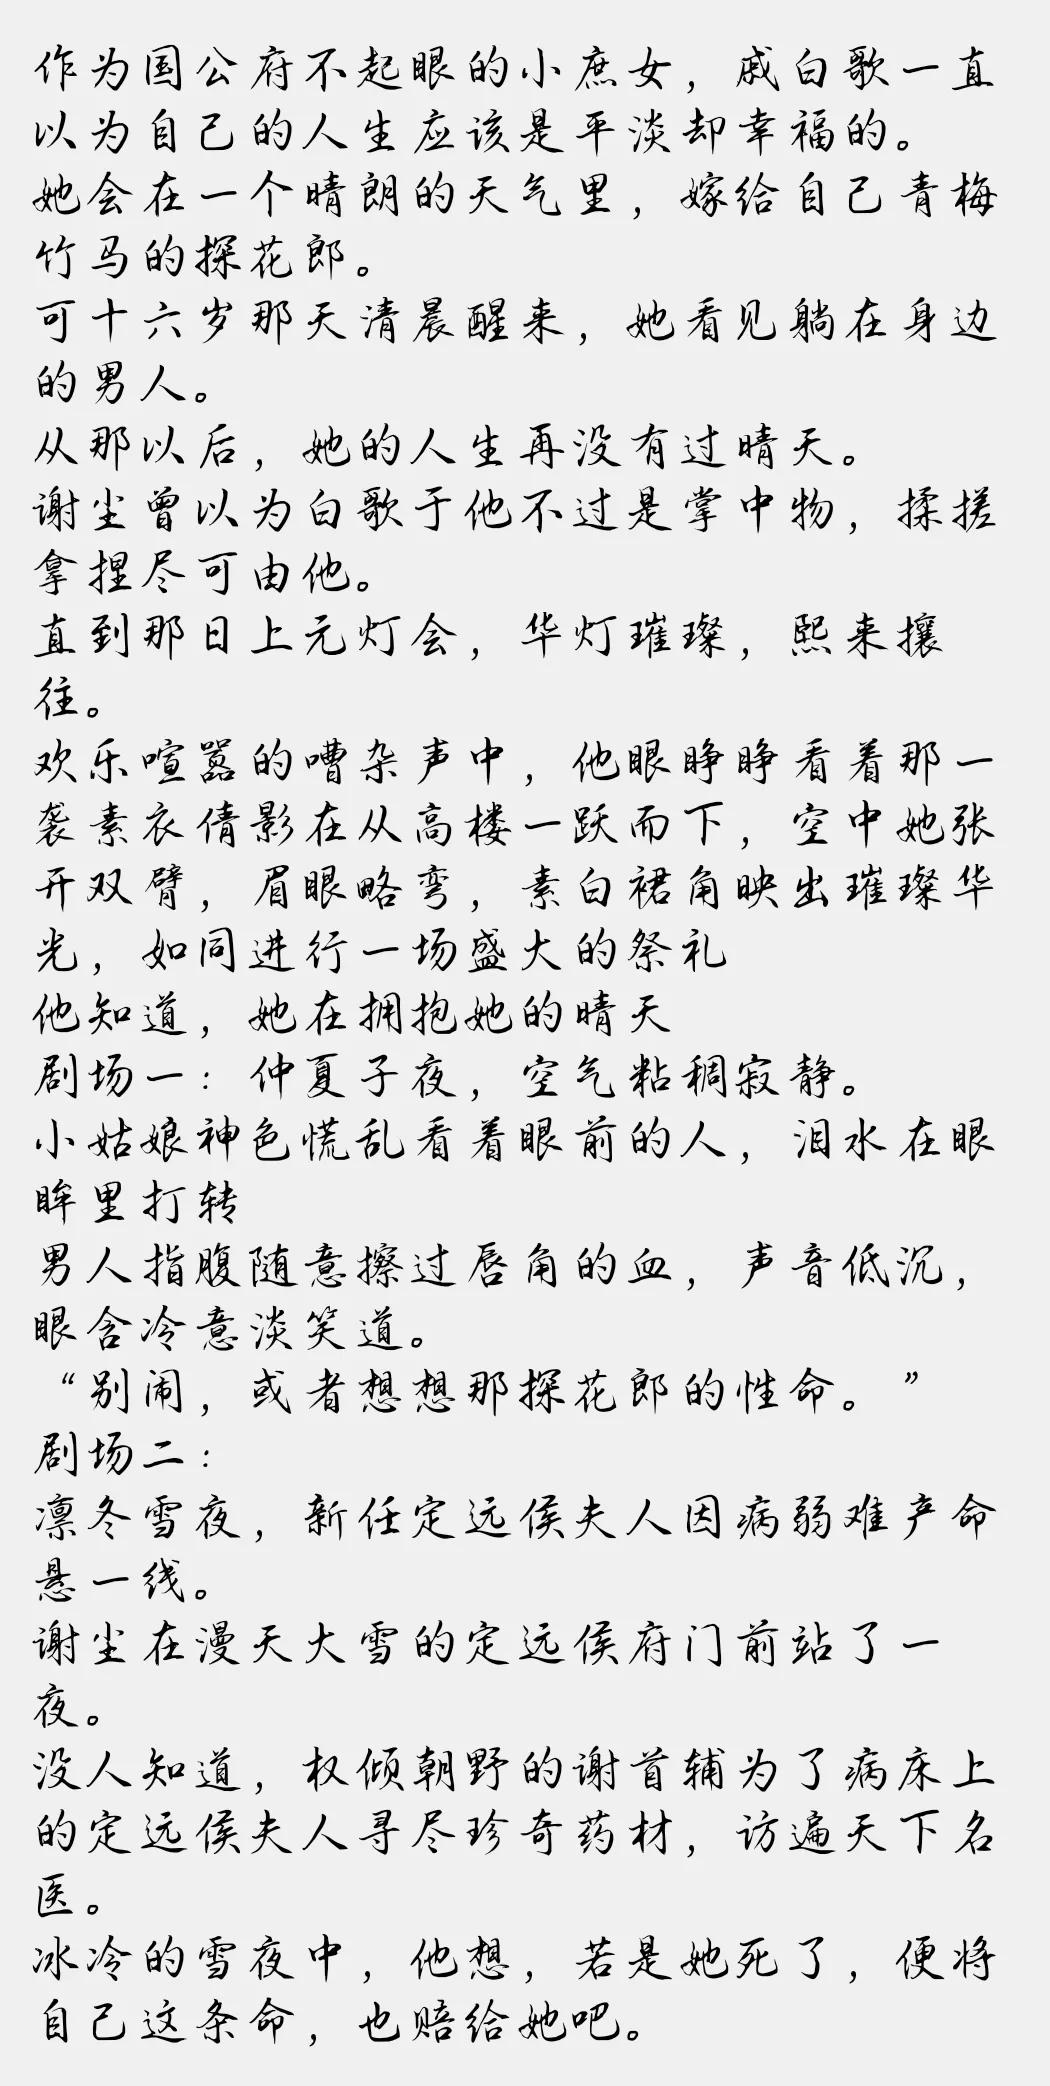 作为国公府不起眼的小庶女，戚白歌一直
以为自己的人生应该是平淡却幸福的。
她会在一个晴朗的天气里，嫁给自己青梅
竹马的探花郎。
可十六岁那天清晨醒来，她看见躺在身边
的男人。
从那以后，她的人生再没有过晴天。
谢尘曾以为白歌于他不过是掌中物，揉搓
拿捏尽可由他。
直到那日上元灯会，华灯璀璨，熙来攘
往。
欢乐喧嚣的嘈杂声中，他眼睁睁看着那一
袭素衣倩影在从高楼一跃而下，空中她张
开双臂，眉眼略弯，素白裙角映出璀璨华
光，如同进行一场盛大的祭礼
他知道，她在拥抱她的晴天
剧场一：仲夏子夜，空气粘稠寂静。
小姑娘神色慌乱看着眼前的人，泪水在眼
眸里打转
男人指腹随意擦过唇角的血，声音低沉，
眼含冷意淡笑道。
“别闹，或者想想那探花郎的性命。”
剧场二：
凛冬雪夜，新任定远侯夫人因病弱难产命
悬一线。
谢尘在漫天大雪的定远侯府门前站了一
夜。
没人知道，权倾朝野的谢首辅为了病床上
的定远侯夫人寻尽珍奇药材，访遍天下名
医。
冰冷的雪夜中，他想，若是她死了，便将
自己这条命，也赔给她吧。